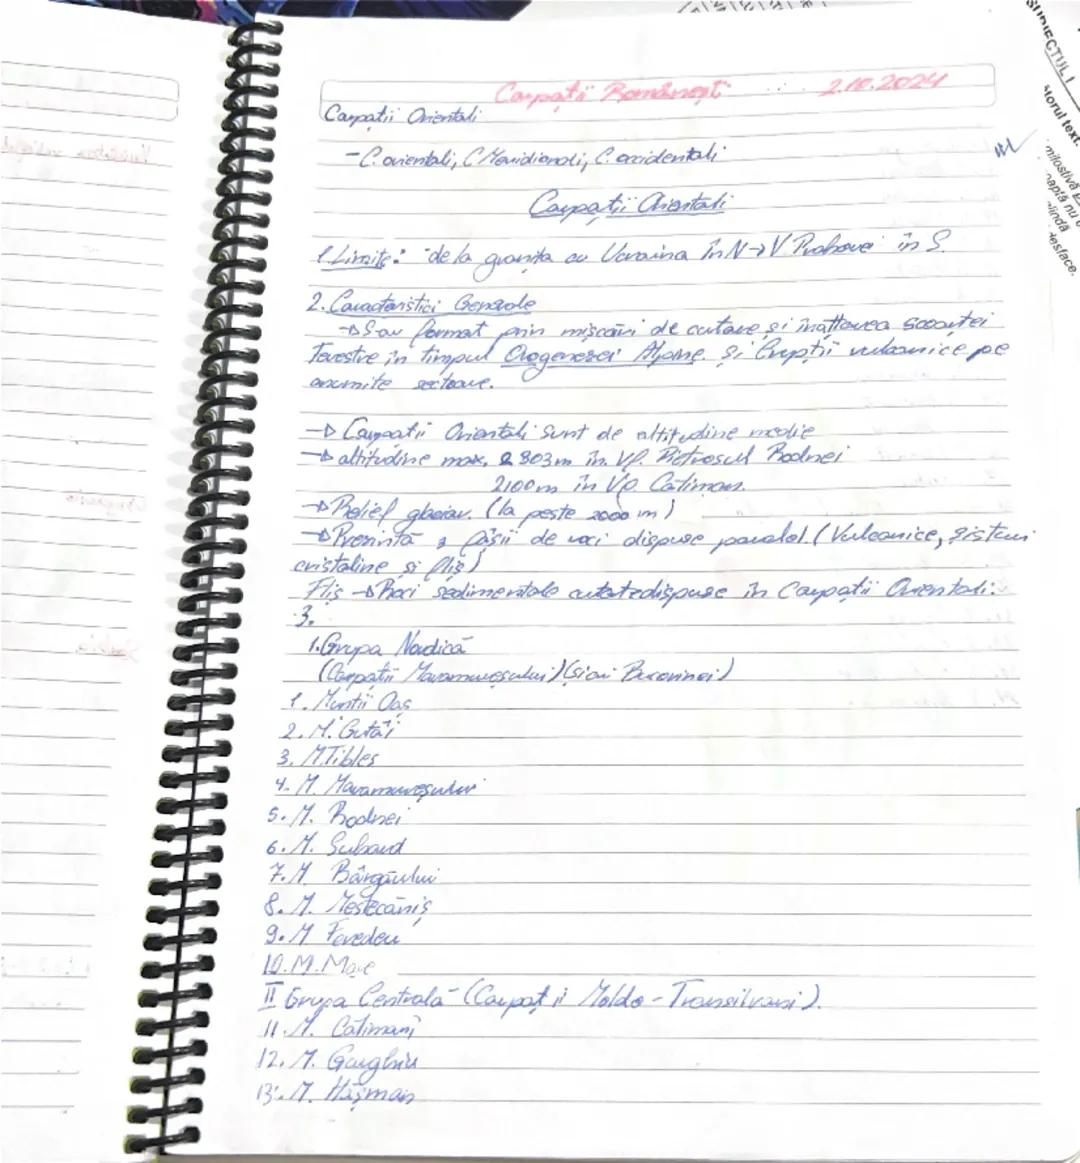 Carpatii Românești 2.10.2024
Carpatii Orientali
- C. orientali, C Meridionali, C. occidentali
Carpații Orientali
1. Limite: de la granita cu Ucraina în N→V. Prahova în S.
2. Caracteristici Generale
→ S-au format prin mișcări de cutare și înaltarea scoartei
Terestre în timpul Orogenezei Alpine și Eruptii vulcanice pe
anumite sectoare.
→ Carpatii Orientali sunt de altitudine medie
→ altitudine max. 2303m în Vf. Pietrosul Rodnei
2100m în Vf. Calimani
→ Relief glaciar. (la peste 2000 m)
→ Prezintă 3 fâșii de roci dispuse paralel (Vulcanice, șisturi
cristaline și fliș)
Fliș → Roci sedimentale cutate dispuse în Carpatii Orientali:
3.
1. Grupa Nordică
(Carpatii Maramureșului) (si ai Bucovinei)
1. Muntii Oaș
2. M. Gutâi
3. M. Tibles
4. M. Maramureșului
5. M. Rodnei
6. M. Suhard
7. M Bârgăului
8. M. Mestecăniș
9. M Feredeu
10. M. Mare
II Grupa Centrală (Carpatii Moldo-Transilvani)
11. M. Calimani
12. M. Gurghiu
13. M. Hășmaș
SUBIECTUL I
textu
milostivă
noaptă nu